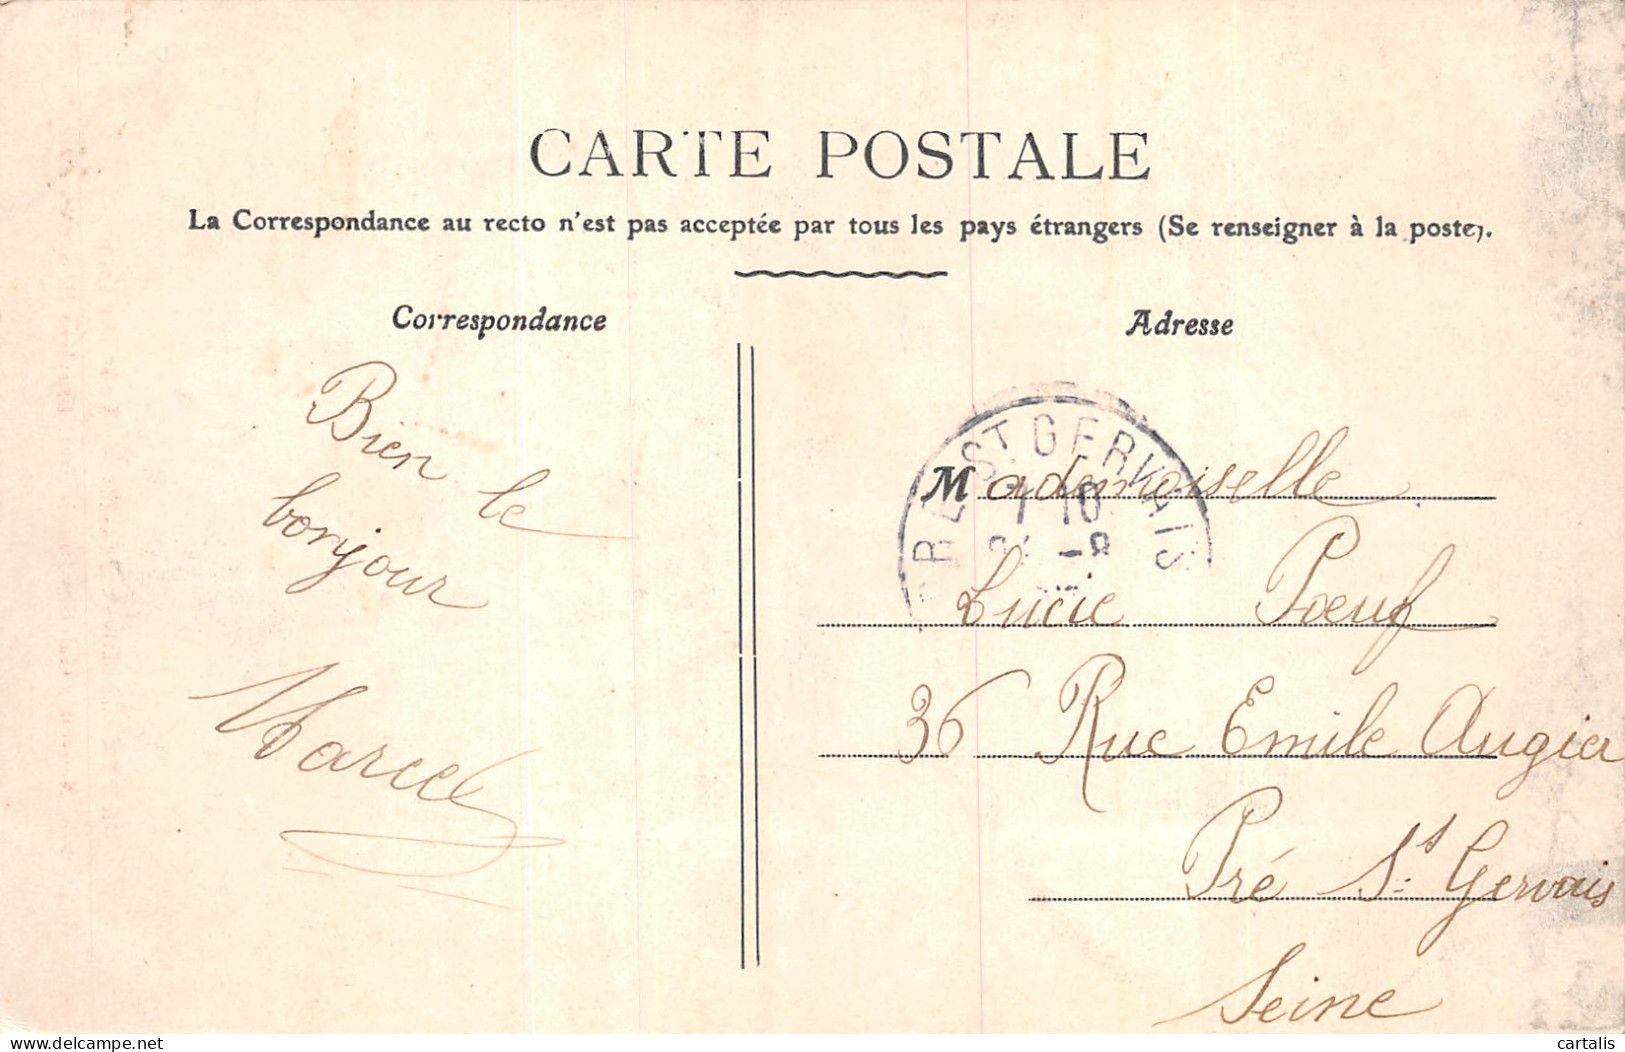 CARTE POSTALE
La Correspondance au recto n'est pas acceptée par tous les pays étrangers (Se renseigner à la poste).
Correspondance
Bien le
bonjour
Marcel
Adresse
PRE ST GERVAIS
Mademoiselle
Lucie Pœuf
36 Rue Emile Augier
Pré St Gervais
Seine
delcampe.net
cartalis